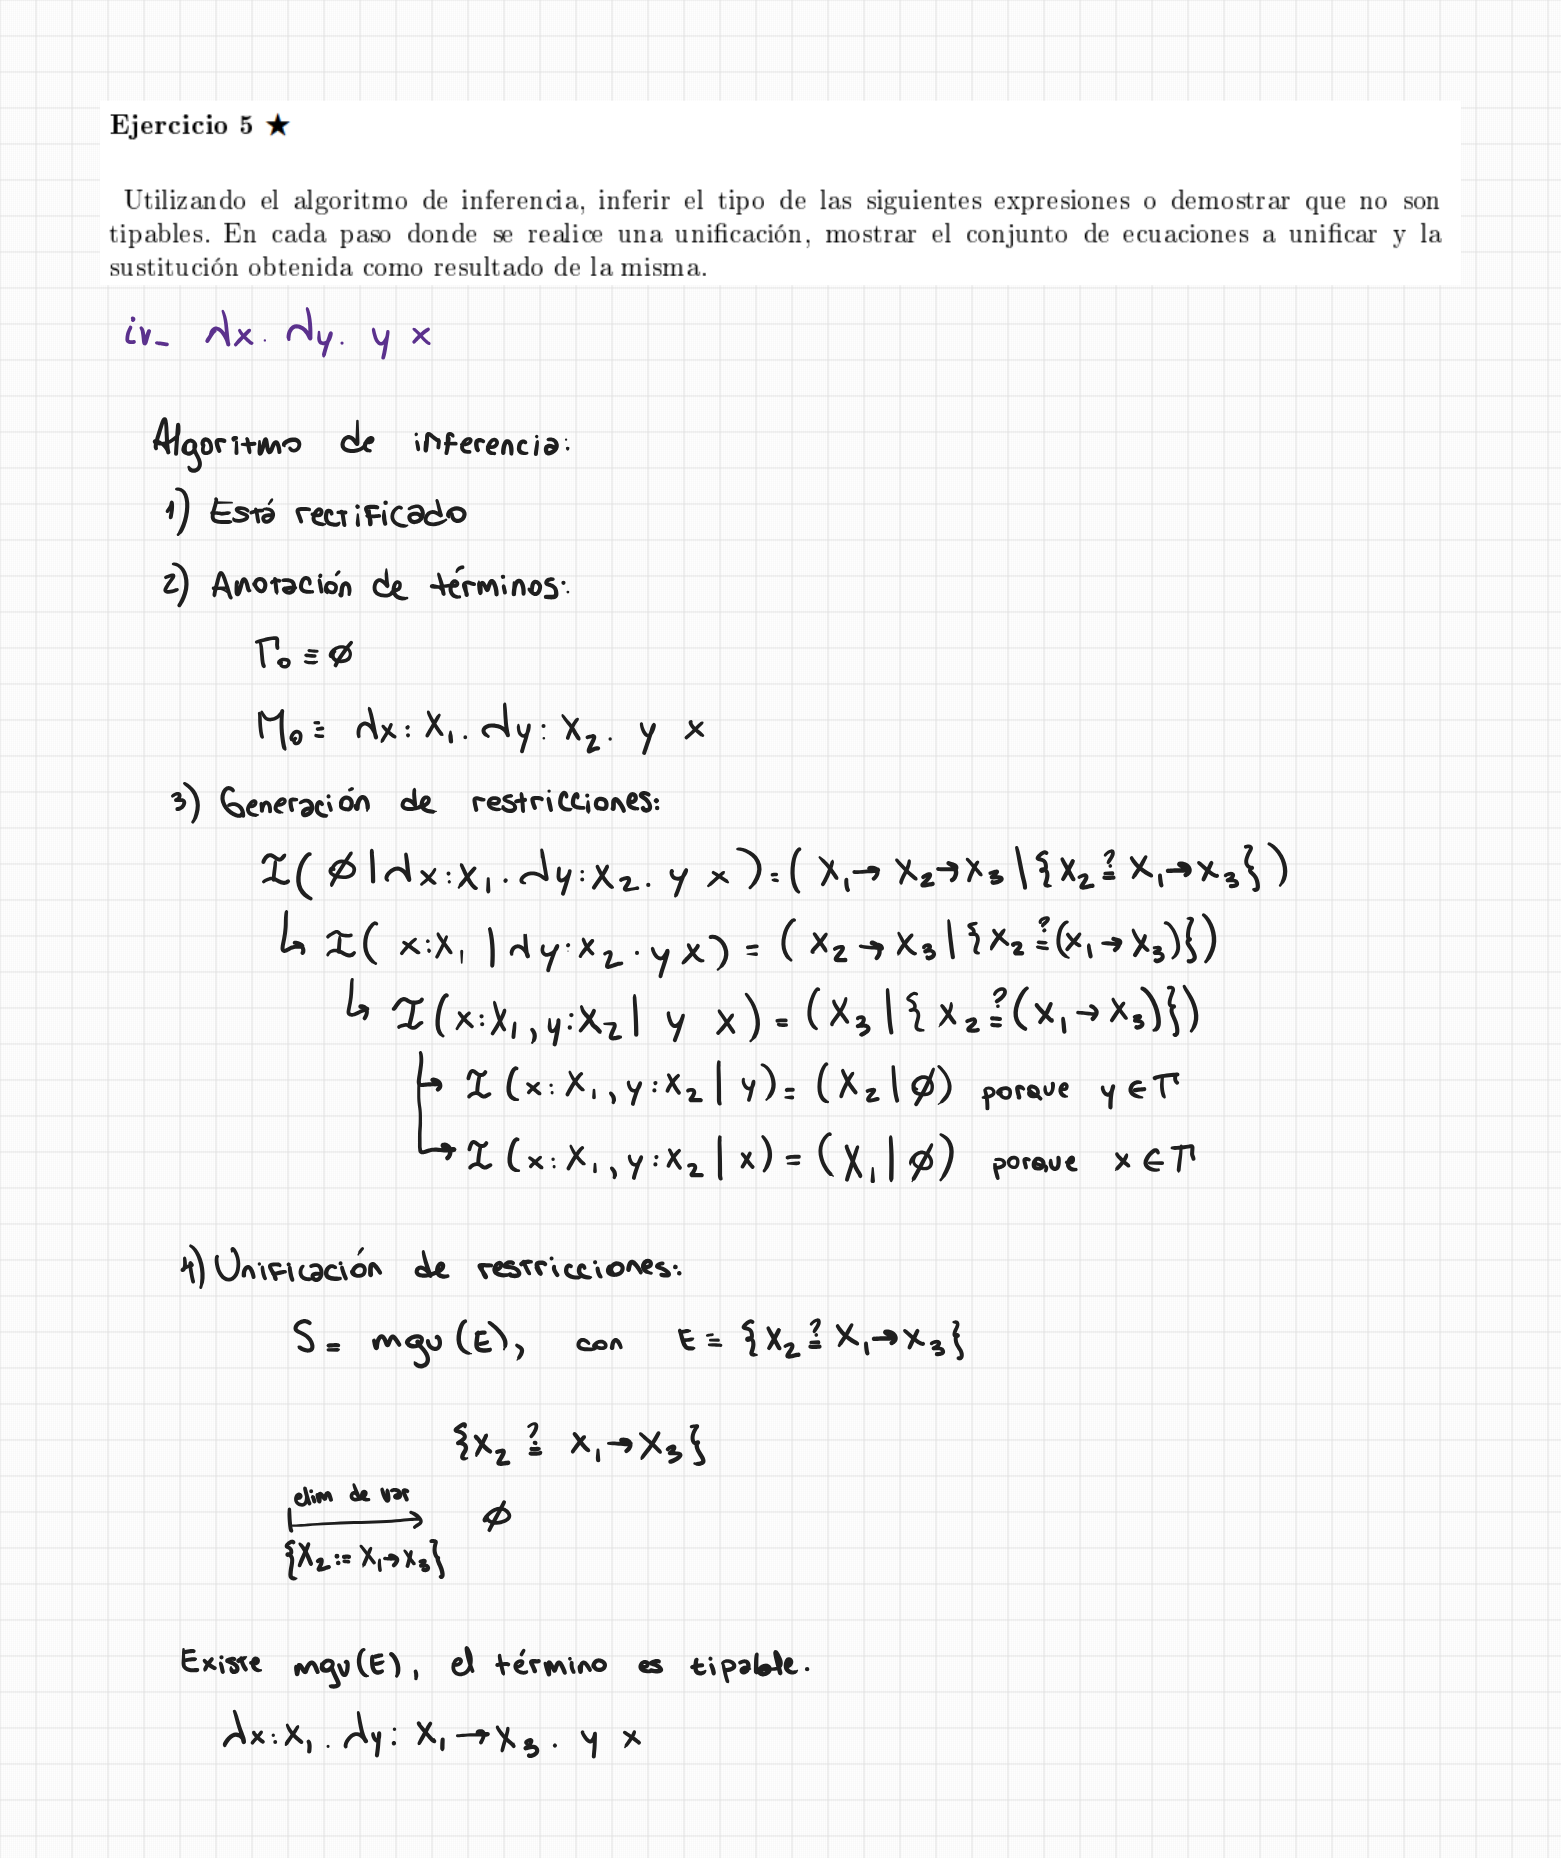 Ejercicio 5 ★
Utilizando el algoritmo de inferencia, inferir el tipo de las siguientes expresiones o demostrar que no son
tipables. En cada paso donde se realice una unificación, mostrar el conjunto de ecuaciones a unificar y la
sustitución obtenida como resultado de la misma.
iv_ λx. λy. y x
Algoritmo de inferencia:
1) Está rectificado
2) Anotación de términos:
Γ₀ ≡ ∅
M₀ ≡ λx: X₁. λy: X₂. y x
3) Generación de restricciones:
I( ∅ | λx:X₁. λy:X₂. y x ) = ( X₁ → X₂ → X₃ | {X₂ ≟ X₁ → X₃} )
↳ I( x:X₁ | λy:X₂. y x ) = ( X₂ → X₃ | {X₂ ≟ (X₁ → X₃)})
↳ I (x:X₁, y:X₂ | y x) = (X₃ | { X₂ ≟ (X₁ → X₃)})
↳ I (x: X₁, y:X₂ | y) = (X₂ | ∅) porque y ∈ Γ
↳ I (x: X₁, y:X₂ | x) = (X₁ | ∅) porque x ∈ Γ
4) Unificación de restricciones:
S = mgu (E), con E = {X₂ ≟ X₁ → X₃}
{X₂ ≟ X₁ → X₃}
elim de var
↦ ∅
{X₂ := X₁ → X₃}
Existe mgu(E), el término es tipable.
λx: X₁. λy: X₁ → X₃. y x